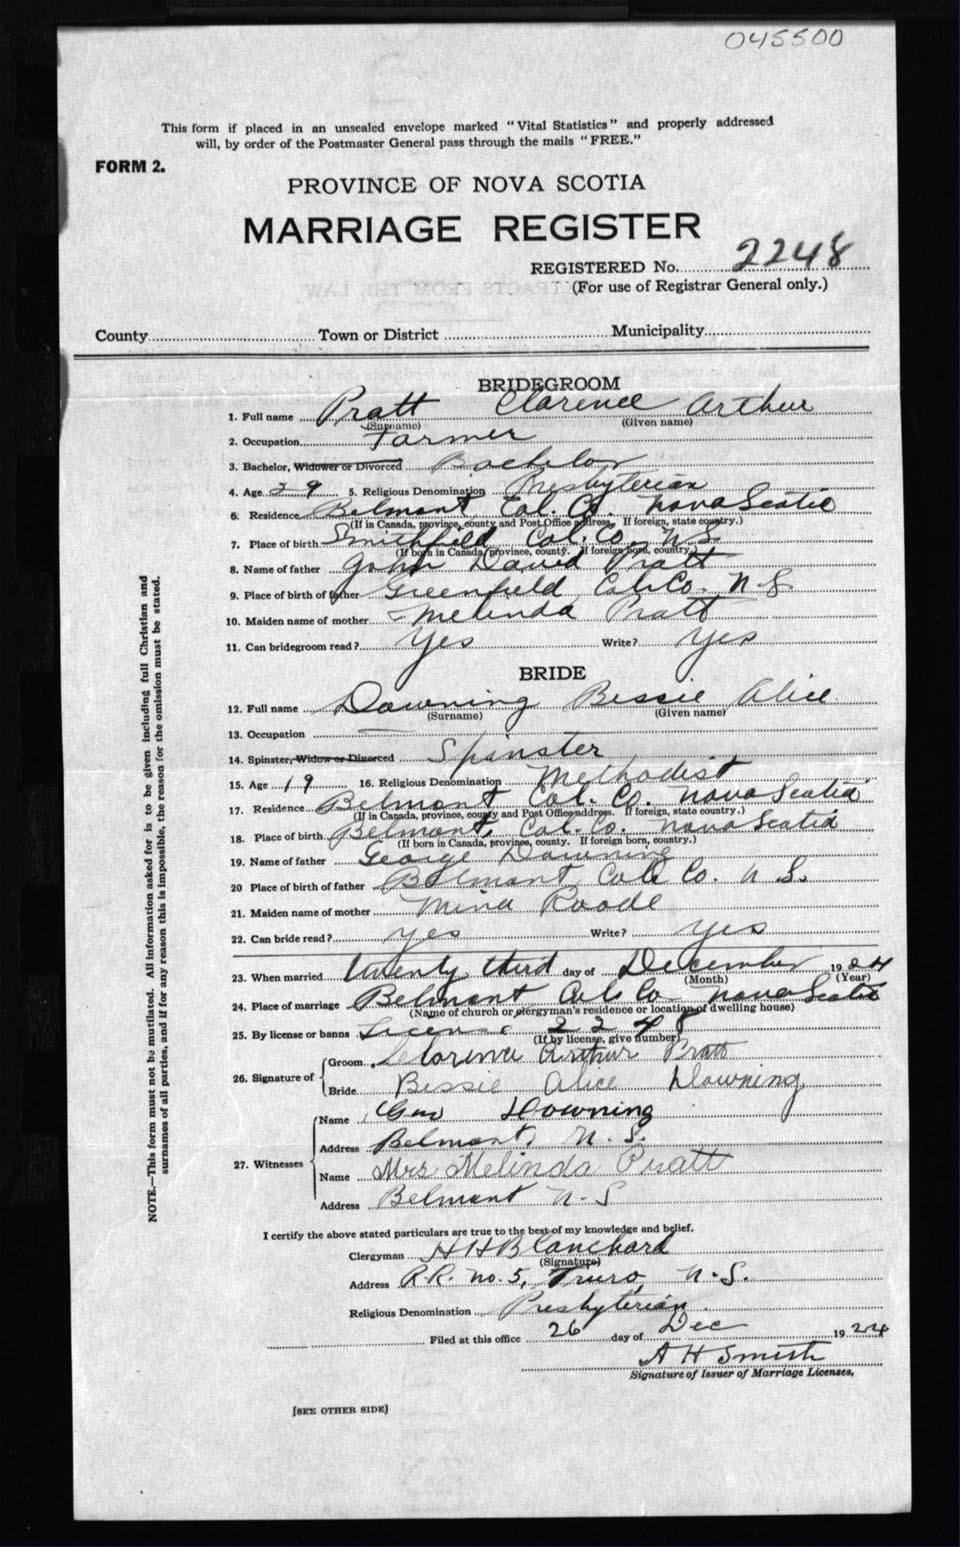 045500
This form if placed in an unsealed envelope marked "Vital Statistics" and properly addressed
will, by order of the Postmaster General pass through the mails "FREE."
FORM 2.
PROVINCE OF NOVA SCOTIA
MARRIAGE REGISTER
REGISTERED No. 2248
(For use of Registrar General only.)
County Town or District Municipality
BRIDEGROOM
1. Full name Pratt Clarence Arthur
(Surname) (Given name)
2. Occupation Farmer
3. Bachelor, Widower or Divorced Bachelor
4. Age 29 5. Religious Denomination Presbyterian
6. Residence Belmont, Col. Co. Nova Scotia
(If in Canada, province, county and Post Office address. If foreign, state country.)
7. Place of birth Smithfield Col. Co. N.S.
(If born in Canada, province, county. If foreign born, country.)
8. Name of father John David Pratt
9. Place of birth of father Greenfield, Col. Co. N.S
10. Maiden name of mother Melinda Pratt
11. Can bridegroom read? Yes Write? Yes
BRIDE
12. Full name Downing Bessie Alice
(Surname) (Given name)
13. Occupation —
14. Spinster, Widow or Divorced Spinster
15. Age 19 16. Religious Denomination Methodist
17. Residence Belmont Col. Co. Nova Scotia
(If in Canada, province, county and Post Office address. If foreign, state country.)
18. Place of birth Belmont, Col. Co. Nova Scotia
(If born in Canada, province, county. If foreign born, country.)
19. Name of father George Downing
20 Place of birth of father Belmont, Col Co. N S.
21. Maiden name of mother Mina Roode
22. Can bride read? yes Write? yes
23. When married twenty third day of December 1924
(Month) (Year)
24. Place of marriage Belmont, Col. Co. Nova Scotia
(Name of church or clergyman's residence or location of dwelling house)
25. By license or banns License 2248
(If by license, give number)
26. Signature of Groom Clarence Arthur Pratt
Bride Bessie Alice Downing
27. Witnesses Name Geo Downing
Address Belmont, N. S.
Name Mrs Melinda Pratt
Address Belmont N. S
I certify the above stated particulars are true to the best of my knowledge and belief.
Clergyman H H Blanchard
(Signature)
Address R.R. No. 5, Truro, N.S.
Religious Denomination Presbyterian
Filed at this office 26 day of Dec 1924
A H Smith
Signature of Issuer of Marriage Licenses.
[SEE OTHER SIDE]
NOTE.—This form must not be mutilated. All information asked for is to be given including full Christian and
surnames of all parties, and if for any reason this is impossible, the reason for the omission must be stated.